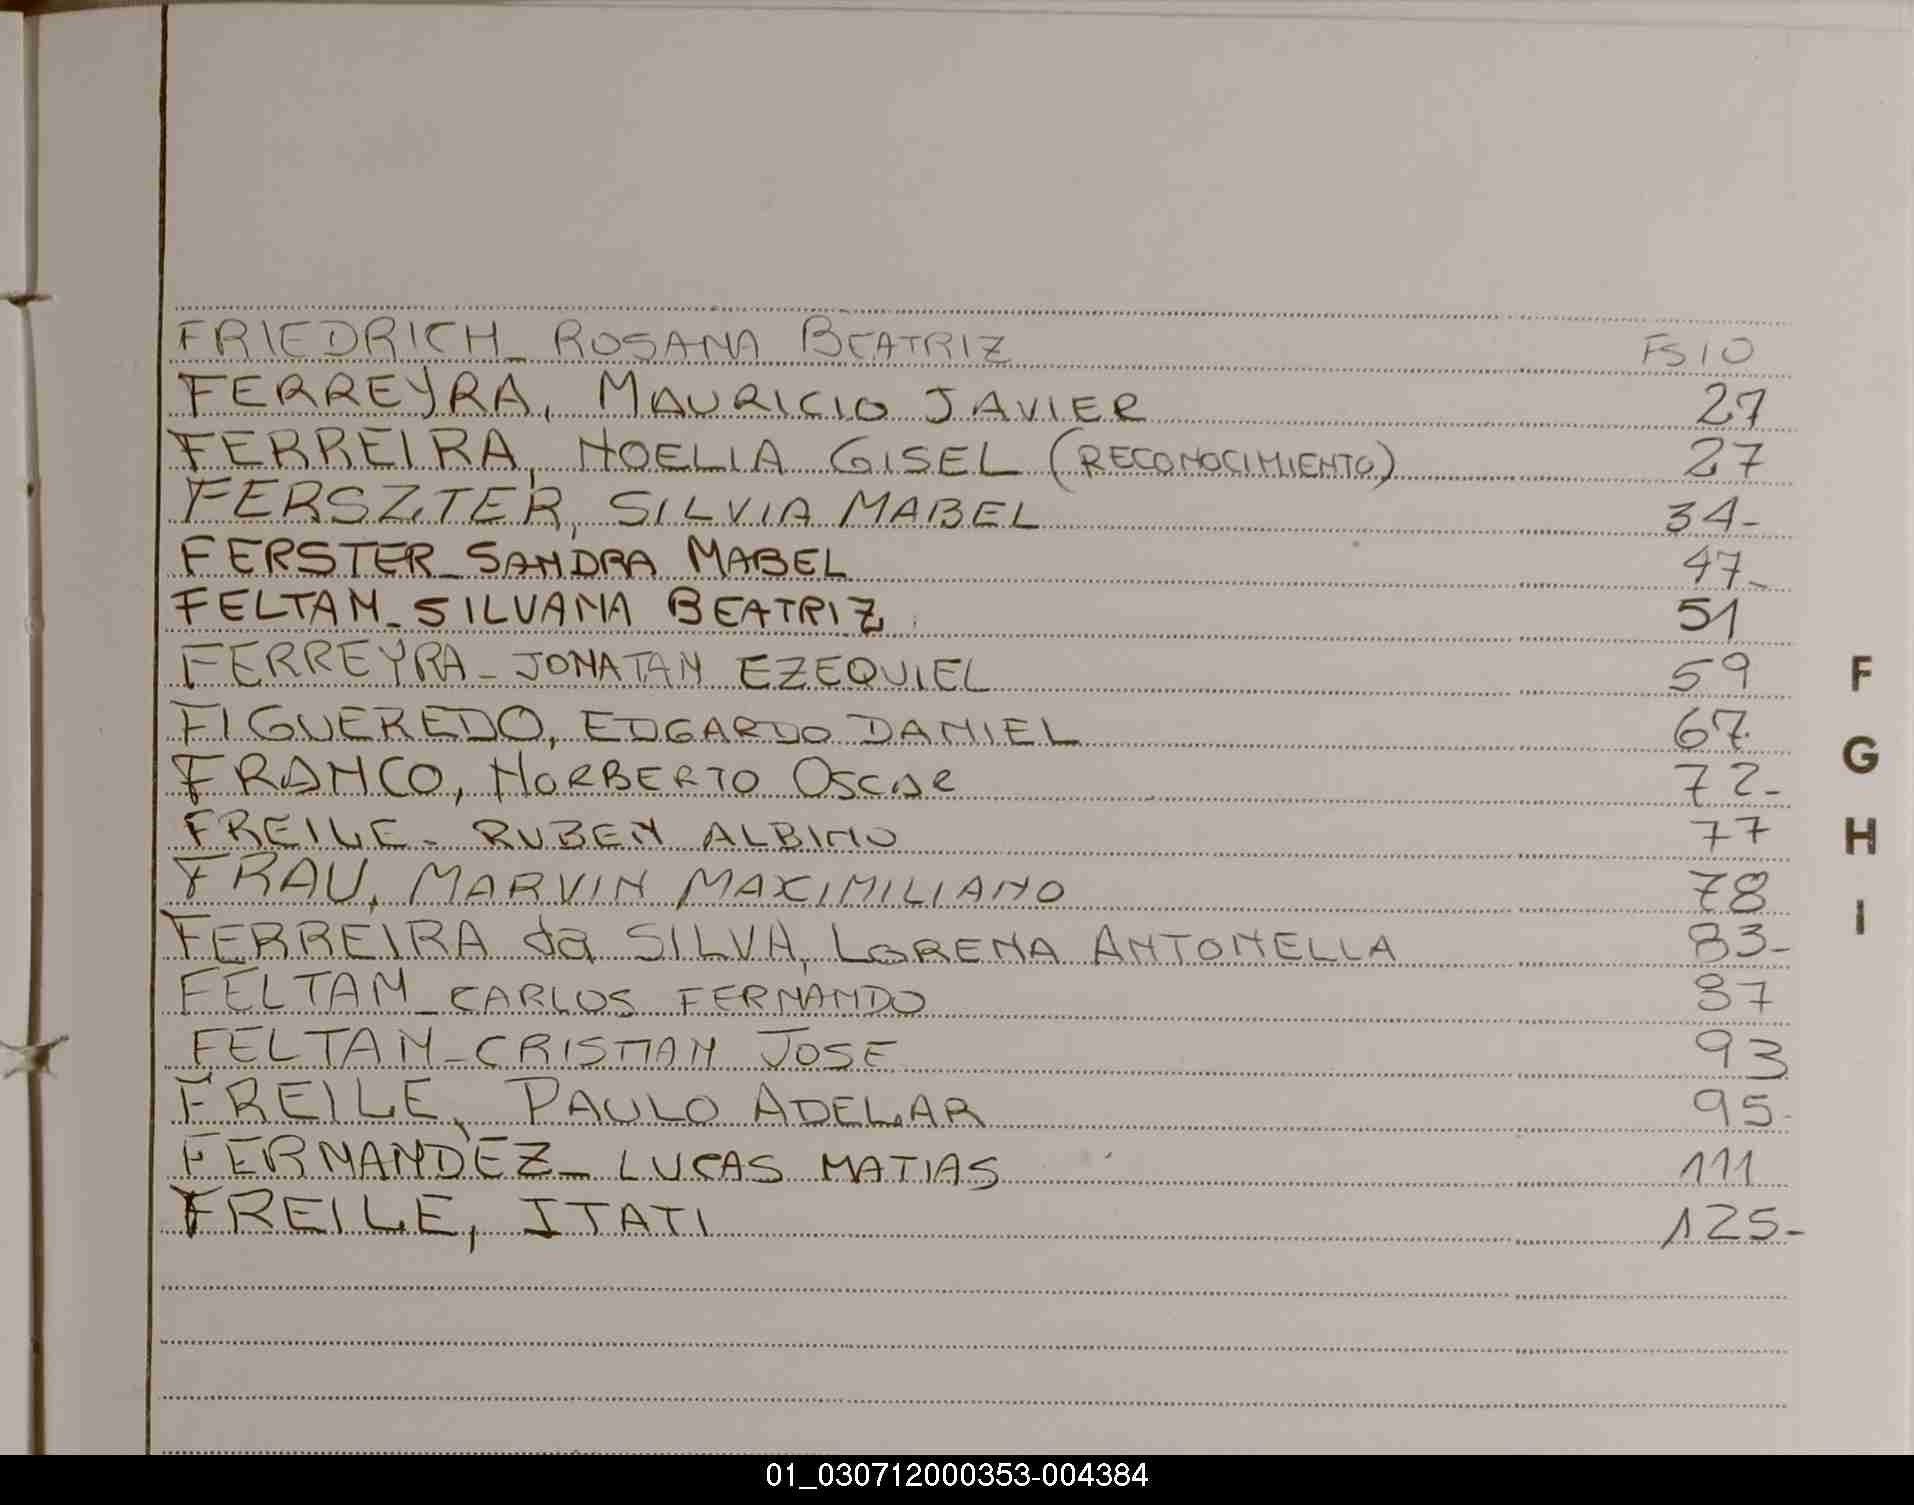 FRIEDRICH_ ROSANA BEATRIZ FS10
FERREYRA, MAURICIO JAVIER 27
FERREIRA, NOELIA GISEL (RECONOCIMIENTO) 27
FERSZTER, SILVIA MABEL 34-
FERSTER_ SANDRA MABEL 47-
FELTAN_ SILVANA BEATRIZ 51
FERREYRA_ JONATAN EZEQUIEL 59
FIGUEREDO, EDGARDO DANIEL 67
FRANCO, NORBERTO OSCAR 72-
FREILE- RUBEN ALBINO 77
FRAU, MARVIN MAXIMILIANO 78
FERREIRA da SILVA, LORENA ANTONELLA 83-
FELTAN_ CARLOS FERNANDO 87
FELTAN_ CRISTIAN JOSE 93
FREILE, PAULO ADELAR 95-
FERNANDEZ_ LUCAS MATIAS 111
FREILE, ITATI 125-
F
G
H
I
01_030712000353-004384